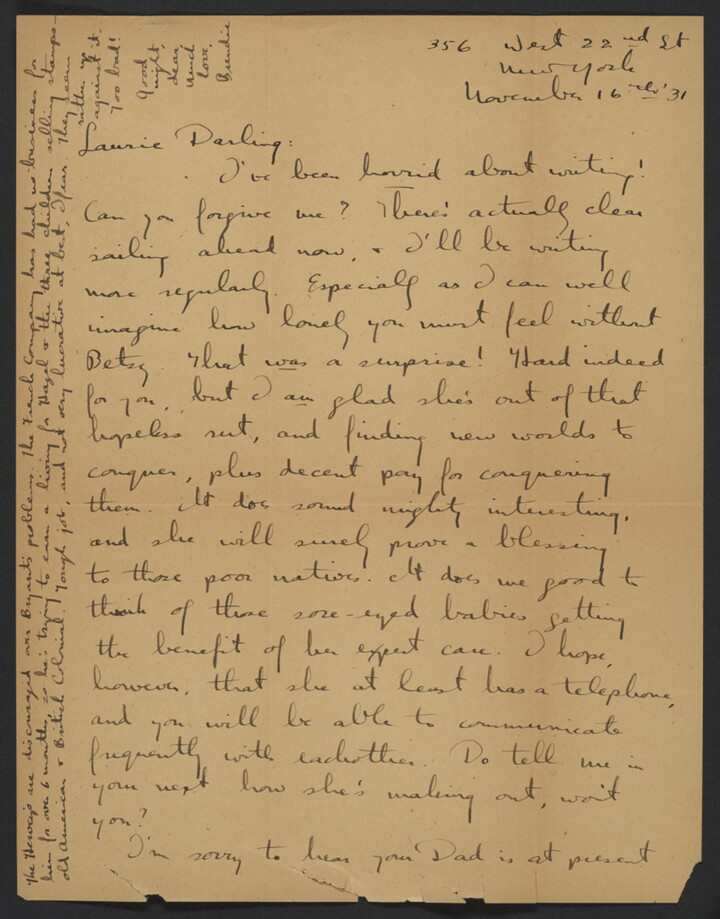 356 West 22nd St
New York
November 16th '31
Laurie Darling:
I've been horrid about writing!
Can you forgive me? There's actually clear
sailing ahead now, & I'll be writing
more regularly. Especially as I can well
imagine how lonely you must feel without
Betsy. That was a surprise! Hard indeed
for you, but I am glad she's out of that
hopeless rut, and finding new worlds to
conquer, plus decent pay for conquering
them. It does sound mighty interesting,
and she will surely prove a blessing
to those poor natives. It does me good to
think of those sore-eyed babies getting
the benefit of her expert care. I hope,
however, that she at least has a telephone,
and you will be able to communicate
frequently with eachother. Do tell me in
your next how she's making out, won't
you?
I'm sorry to hear your Dad is at present
The are discouraged over Bryant's problems. The French Company has had no business for
him for over 6 months, so he's trying to earn a living for Hazel & the three children selling stamps -
old American & British Colonial. Tough job, and not very lucrative at best, I fear. They seem
rather up
against it.
Too bad!
Good
night,
dear,
much
love,
Brendie